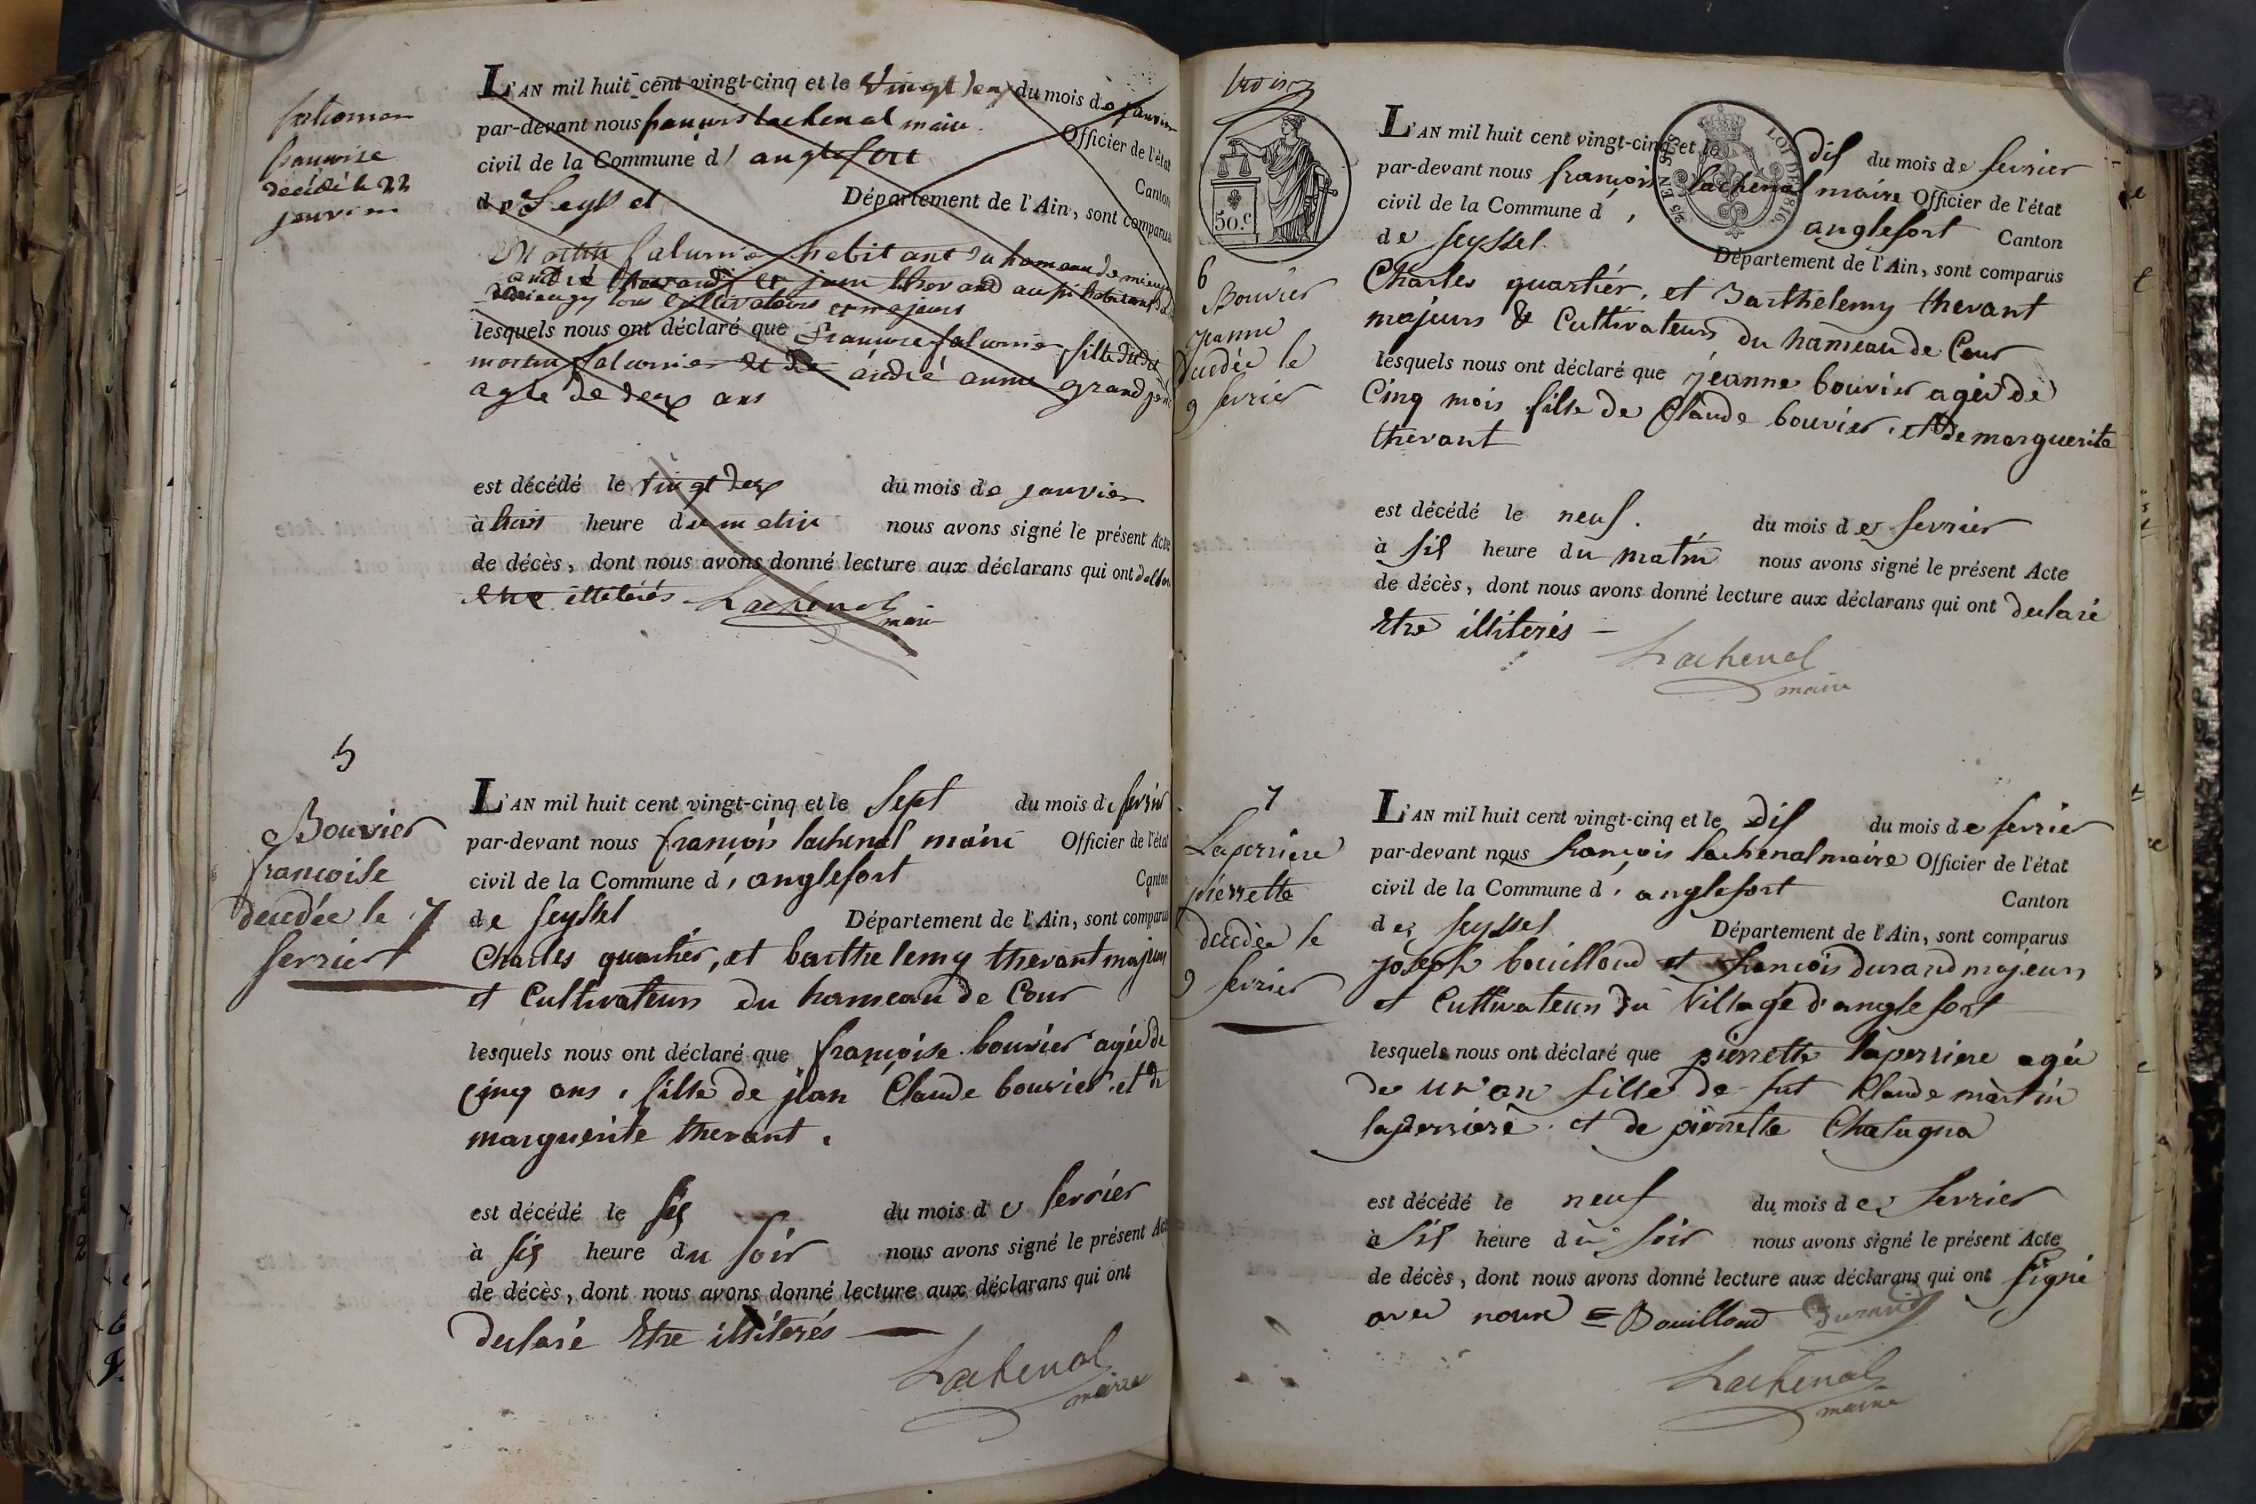 françoise
décédé le 22
janvier
L'AN mil huit cent vingt-cinq et le vingt deux du mois de janvier
par-devant nous françois lachenal maire Officier de l'état
civil de la Commune d' anglefort Canton
de Seyssel Département de l'Ain, sont comparus
Martin habitant du hameau de
et jean thevand aussi habitants
tous cultivateurs et majeurs
lesquels nous ont déclaré que françoise fille dudit
martin et de andré anne grand
agée de deux ans
est décédé le vingt deux du mois de janvier
à trois heure du matin nous avons signé le présent Acte
de décès, dont nous avons donné lecture aux déclarans qui ont
être illiterés Lachenal
maire
5
Bouvier
françoise
decedée le 7
fevrier
L'AN mil huit cent vingt-cinq et le sept du mois de fevrier
par-devant nous françois lachenal maire Officier de l'état
civil de la Commune d' anglefort Canton
de seyssel Département de l'Ain, sont comparus
Charles quartier, et barthelemy thevant majeurs
et Cultivateurs du hameau de Cour
lesquels nous ont déclaré que françoise bouvier agée de
cinq ans, fille de jean Claude bouvier et de
marguerite thevant.
est décédé le six du mois de fevrier
à six heure du soir nous avons signé le présent Acte
de décès, dont nous avons donné lecture aux déclarans qui ont
declaré Etre illiterés
Lachenal
maire
trois
5o.c
35 CEN. SUS
LOI DE 1816.
6
Bouvier
jeanne
decedée le
9 fevrier
L'AN mil huit cent vingt-cinq et le dix du mois de fevrier
par-devant nous françois lachenal maire Officier de l'état
civil de la Commune d' anglefort Canton
de seyssel Département de l'Ain, sont comparus
Charles quartier, et Barthelemy thevant
majeurs & Cultivateurs du hameau de Cour
lesquels nous ont déclaré que jeanne bouvier agée de
Cinq mois fille de Claude bouvier, et de marguerite
thevant
est décédé le neuf. du mois de fevrier
à six heure du matin nous avons signé le présent Acte
de décès, dont nous avons donné lecture aux déclarans qui ont declaré
Etre illiterés
Lachenal
maire
7
Laperriere
pierrette
decedée le
9 fevrier
L'AN mil huit cent vingt-cinq et le dix du mois de fevrier
par-devant nous françois lachenal maire Officier de l'état
civil de la Commune d' anglefort Canton
de seyssel Département de l'Ain, sont comparus
joseph bouilloud et françois durand majeurs
et Cultivateurs du Village d'anglefort
lesquels nous ont déclaré que pierrette laperriere agée
de un an fille de fut Claude martin
laperriere. et de pierrette Chatugna
est décédé le neuf du mois de fevrier
à six heure du soir nous avons signé le présent Acte
de décès, dont nous avons donné lecture aux déclarans qui ont signé
avec nous = Bouilloud Durand
Lachenal
maire